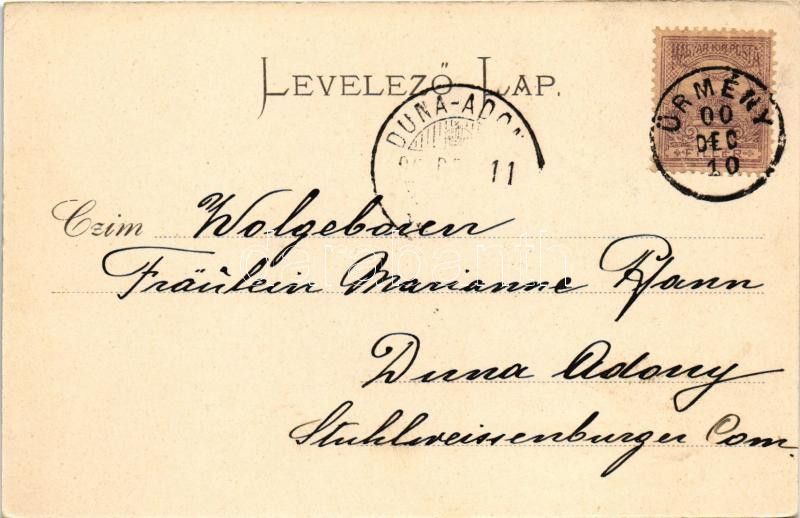 MAGYAR KIR. POSTA
LEVELEZŐ LAP.
ÜRMÉNY
00
DEC
10
DUNA-ADON
11
FILLÉR
Czim Wolgeboren
Fräulein Marianne Pfann
Duna Adony
Stuhlweissenburger Com.
darabanth